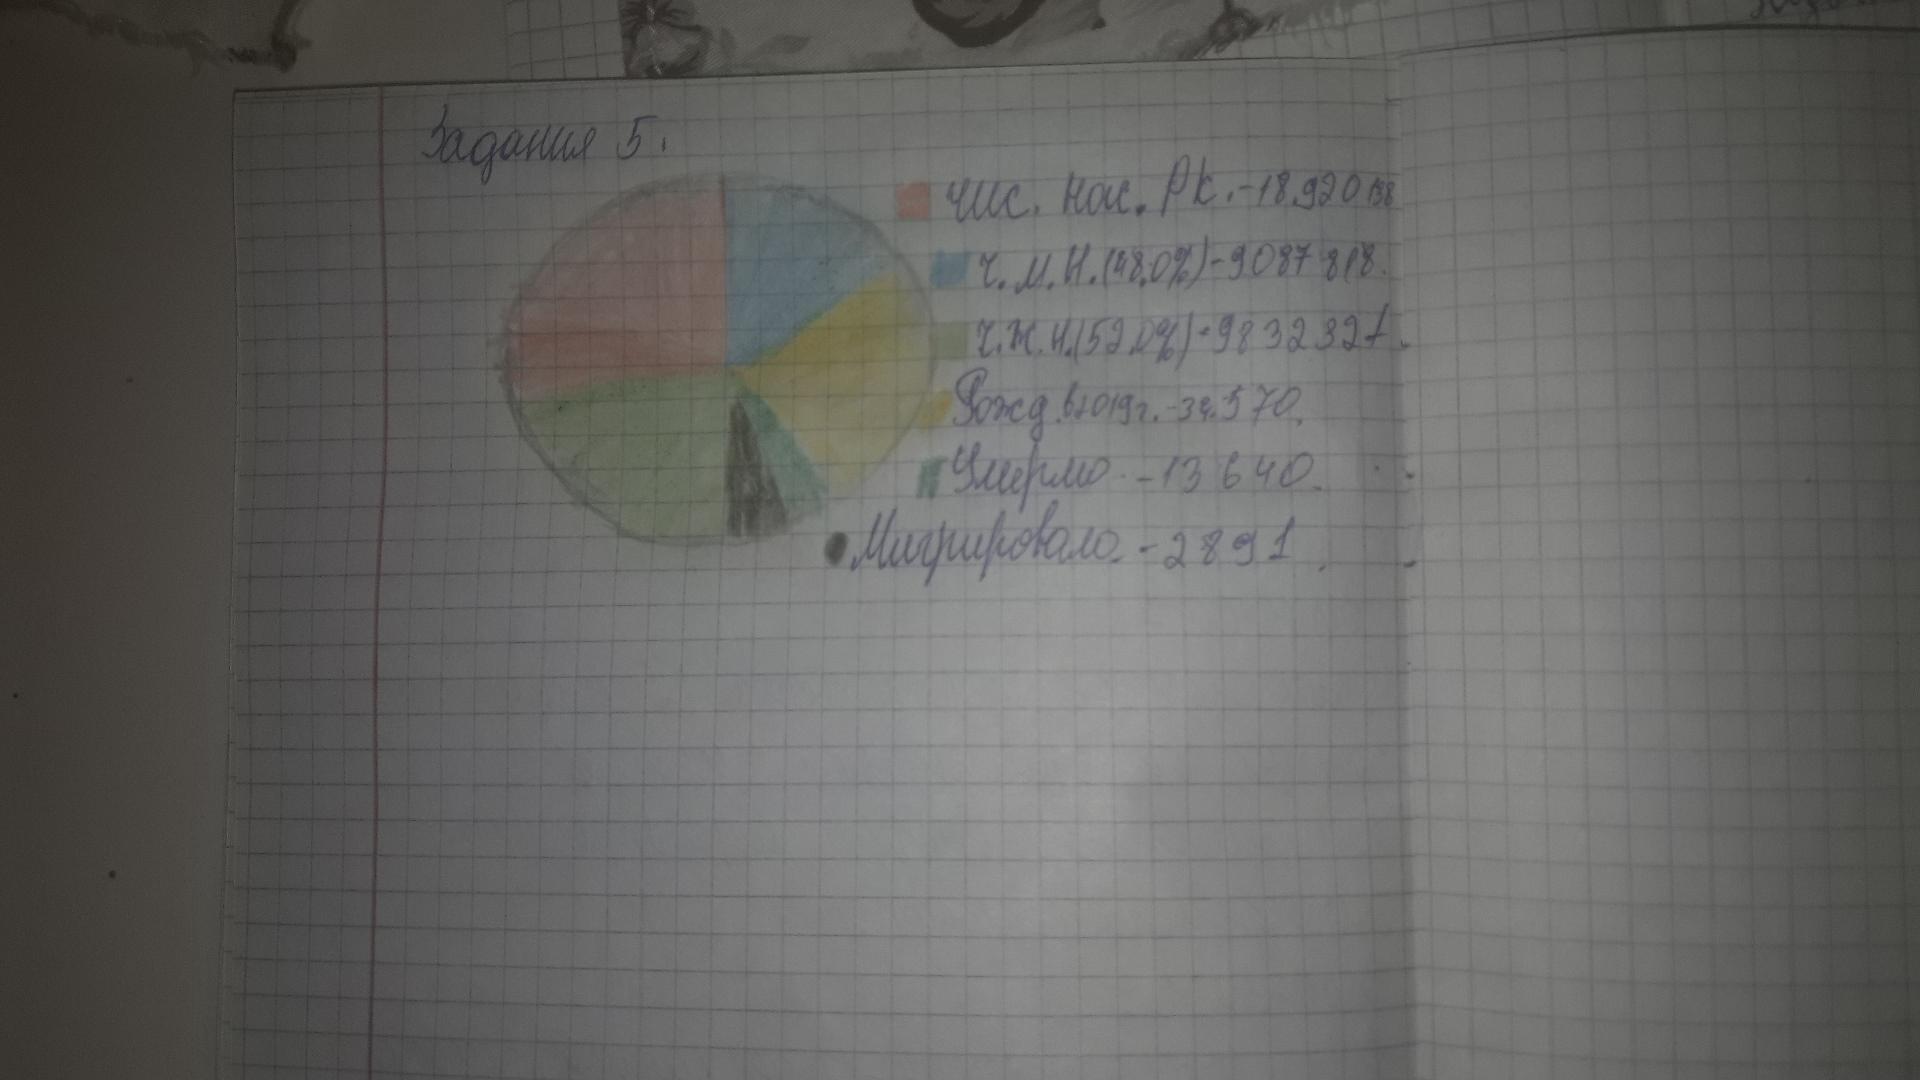 Задания 5.
чис. нас. РК. - 18.920 138
Ч.М.Н.(48.0%) - 9087 818.
Ч.Ж.Н.(52.0%) - 9832321.
Рожд. в2019г. - 34.570.
Умерло - 13 640.
Мигрировало. - 2891.